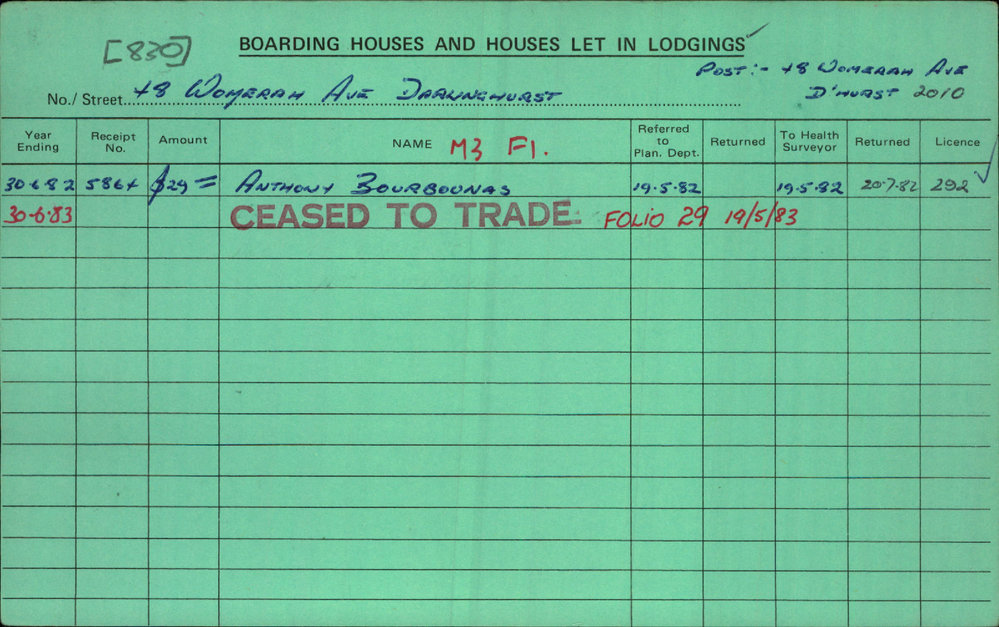 [830]
BOARDING HOUSES AND HOUSES LET IN LODGINGS
Post:- 48 Womerah Ave
D'hurst 2010
No./ Street 48 Womerah Ave Darlinghurst
Year Ending Receipt No. Amount NAME M3 F1. Referred to Plan. Dept. Returned To Health Surveyor Returned Licence
30·6·82 5864 $29= Anthony Bourbounas 19·5·82 19·5·82 20·7·82 292
30·6·83 CEASED TO TRADE FOLIO 29 19/5/83